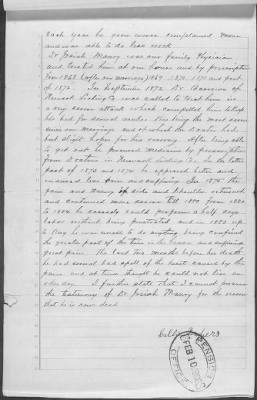 Each year he grew more complained more
and was able to do less work
Dr Josiah Maney was our family Physician
and treated him at our house and by prescription
from 1868 (after our marriage) 1869 1870 1871 and part
of 1872. In September 1872 Dr of
Newark Licking Co was called to treat him in
a very severe attack which compelled him to keep
his bed for several weeks this being the most severe
one since our marriage and of which the Doctor had
but slight hopes for his recovery. After being able
to get out he procured medicine by prescription
from Doctors in Newark Licking Co. In the latter
part of 1873 and 1874 he appeared better and
seemed less pain and suffering. In 1875 the
pain and misery in side and shoulder returned
and continued more severe till 1880 From 1880
to 1882 he scarcely could perform a half days
labor without being prostrated and in 1882 up
to May he was unable to do anything being confined
the greater part of the time in the house and suffering
great pain. The last two months before his death
he had several bad spells of the heart caused by the
pain and at times thought he could not live an
other day. I further state that I cannot procure
the testimony of Dr Josiah Maney for the reason
that he is now dead
PENSION
OFFICE
FEB 10